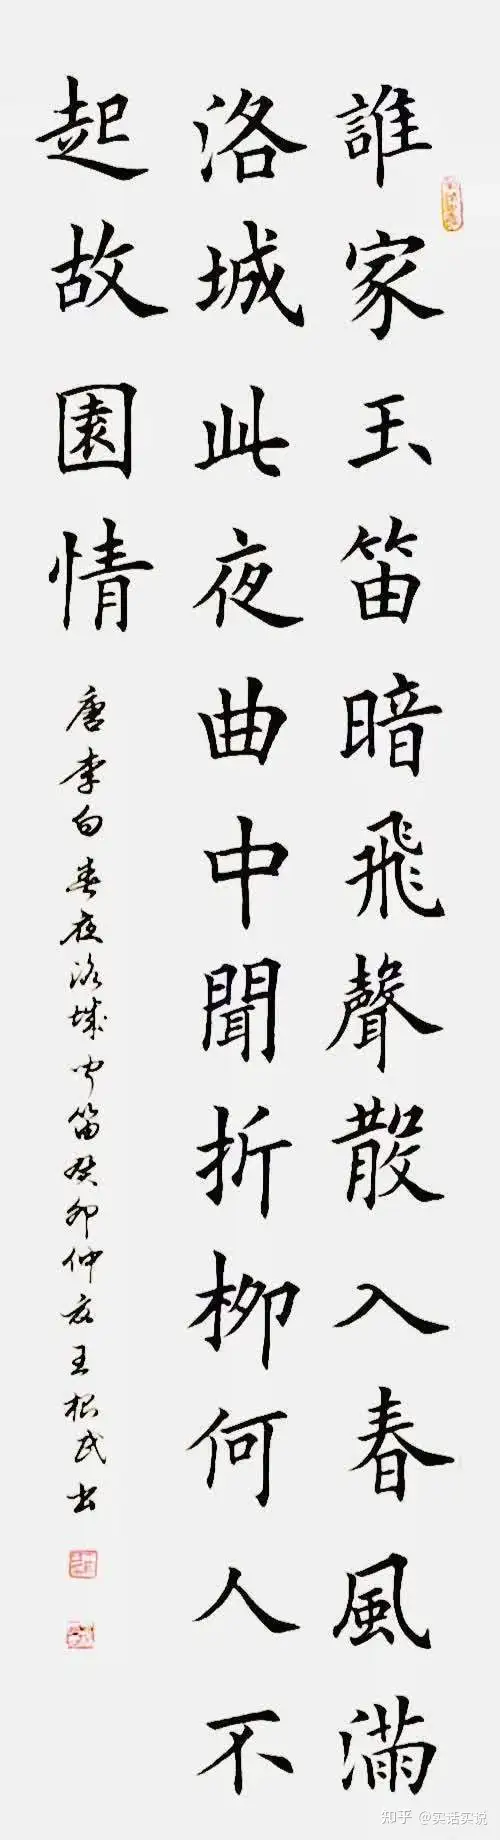 誰家玉笛暗飛聲散入春風滿
洛城此夜曲中聞折柳何人不
起故園情
唐李白春夜洛城闻笛癸卯仲夏王根民书
知乎 @实话实说